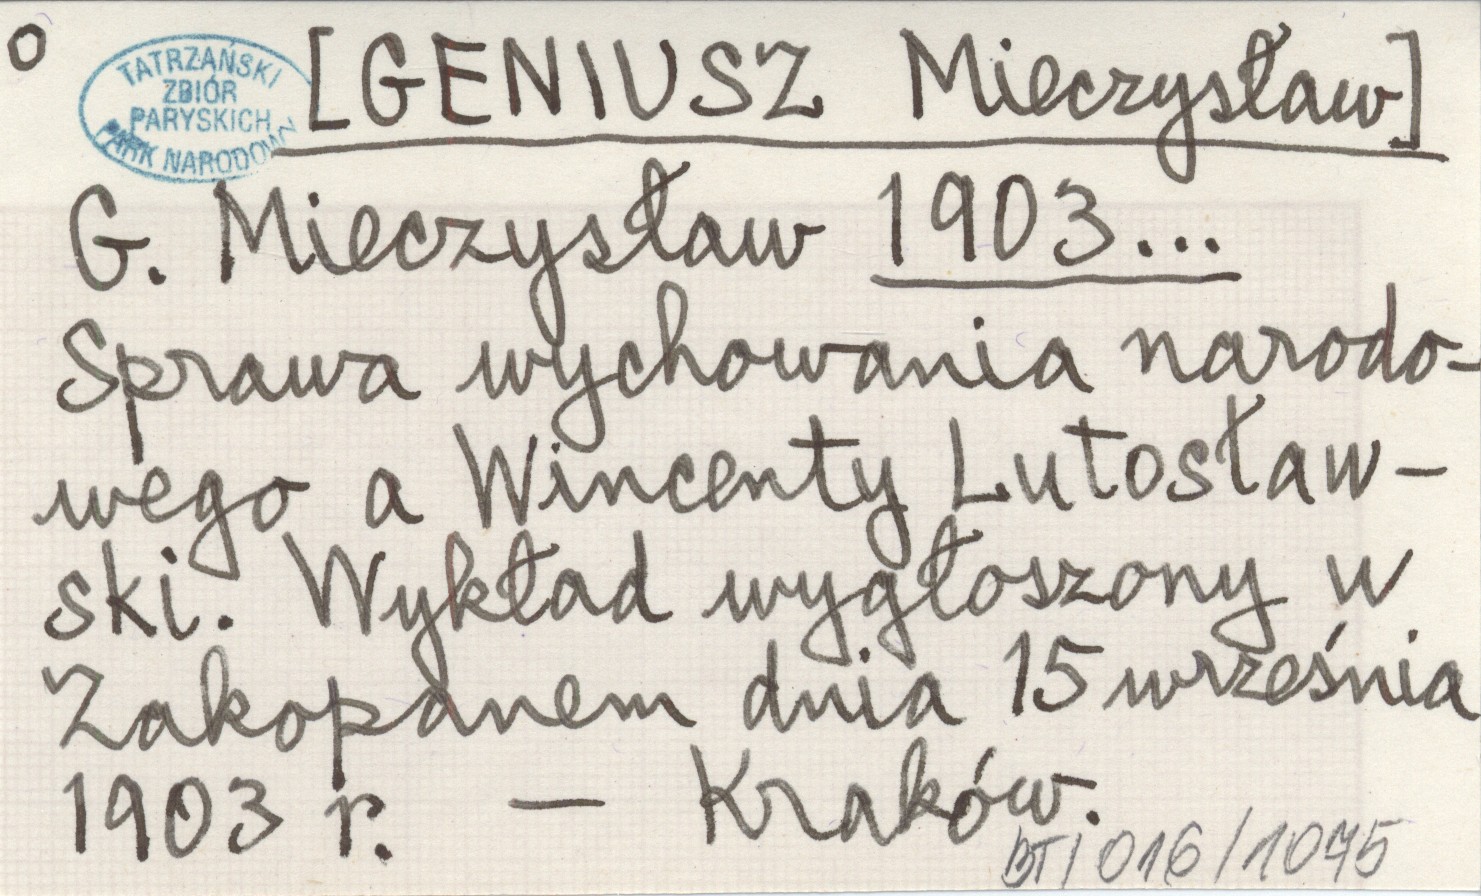 o
TATRZAŃSKI
ZBIÓR
PARYSKICH
PARK NARODOWY
[GENIUSZ Mieczysław]
G. Mieczysław 1903...
Sprawa wychowania narodo-
wego a Wincenty Lutosław-
ski. Wykład wygłoszony w
Zakopanem dnia 15 września
1903 r. — Kraków.
BT/016/1075